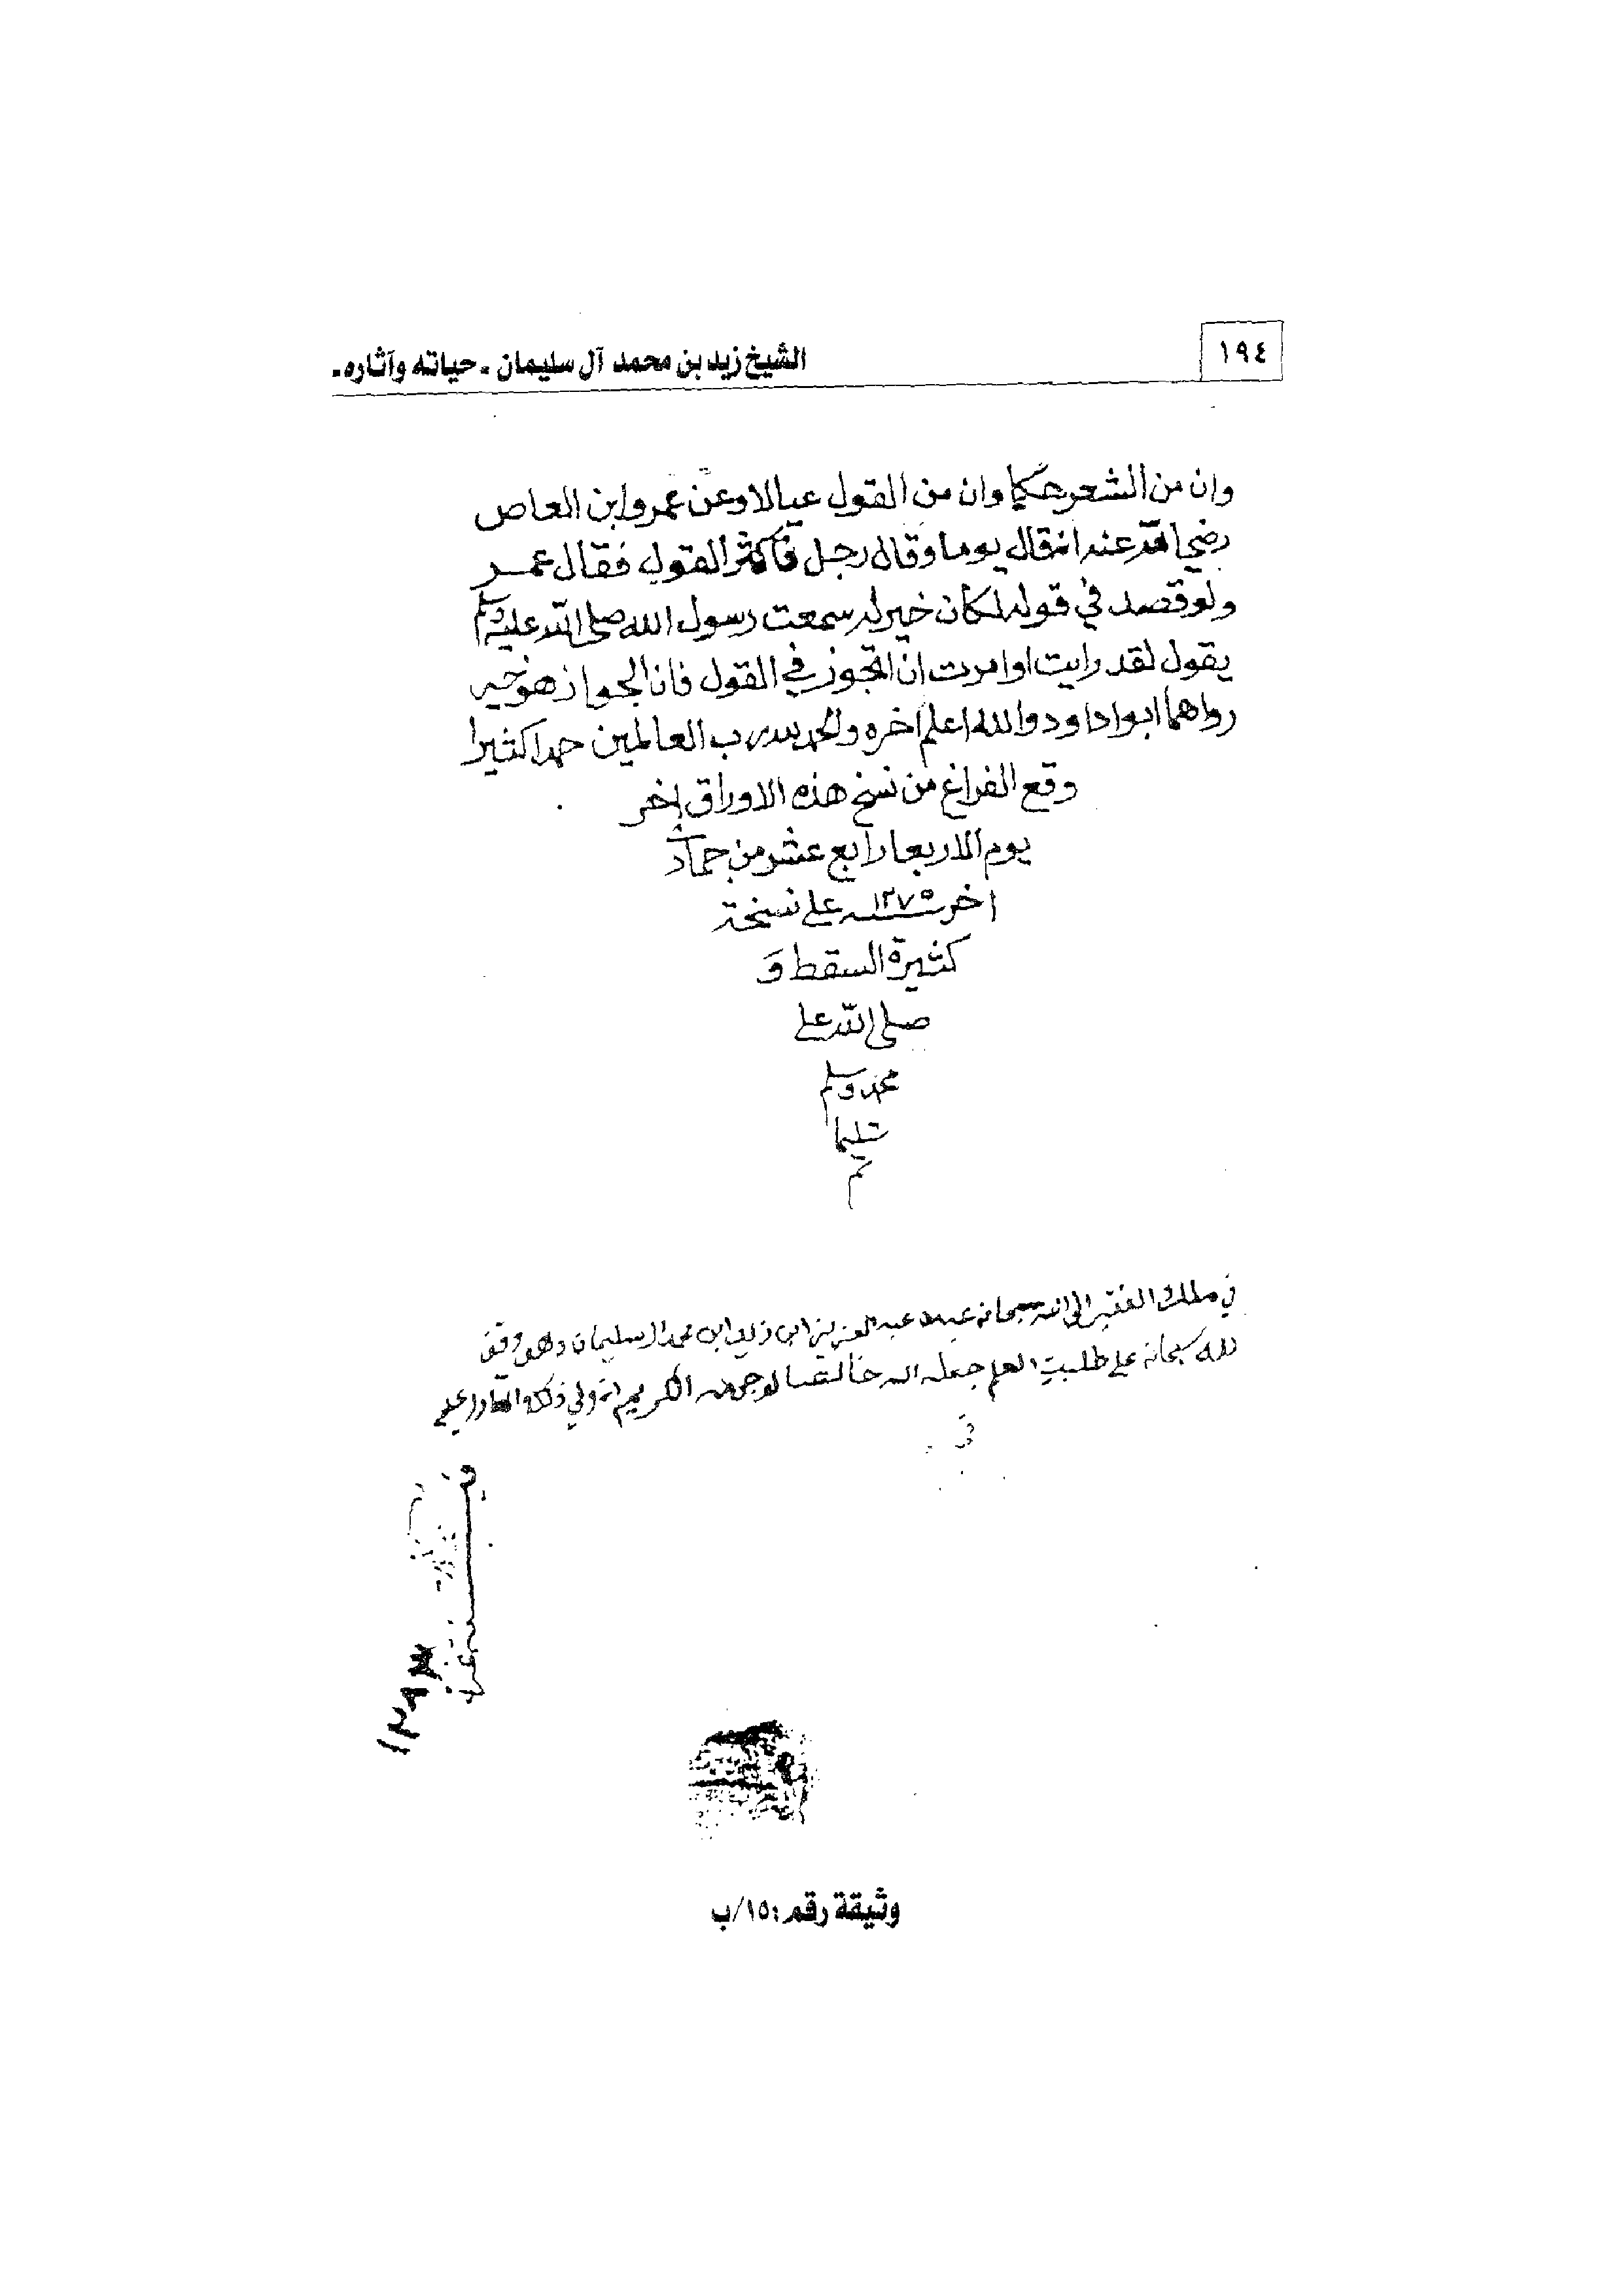 ١٩٤
الشيخ زيد بن محمد آل سليمان - حياته وآثاره -
وان من الشعر حكما وان من القول عيالا وعن عمرو ابن العاص
رضي الله عنه انه قال يوما وقال رجل فأكثر القول فقال عمر
ولو قصد في قوله لكان خير له سمعت رسول الله صلى الله عليه وسلم
يقول لقد رايت او امرت ان اتجوز في القول فان الجواز هو خير
رواهما ابو اداود والله اعلم اخره والحمد لله رب العالمين حمدا كثيرا
وقع الفراغ من نسخ هذه الاوراق اخر
يوم الاربعا رابع عشر من جماد
اخر سنه ١٢٧٥ على نسخة
كثيرة السقط و
صلى الله على
محمد وسلم
تسليما
تم
في ملك الفقير الى الله سبحانه عبده عبد العزيز ابن زيد ابن محمد ال سليمان وهو وقف
لله سبحانه على طلبت العلم جعله الله خالصا لوجهه الكريم انه ولي ذلك والقادر عليه
وثيقة رقم: ١٥/ب